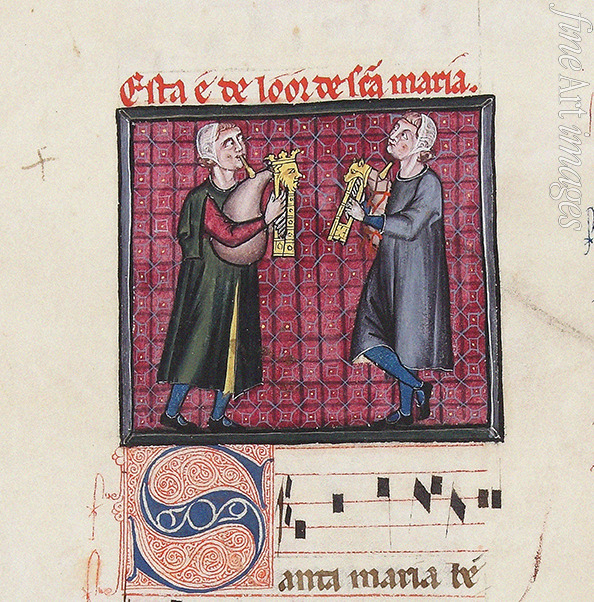 Esta é de loor de scã maria.
Santa maria bē
fine Art images